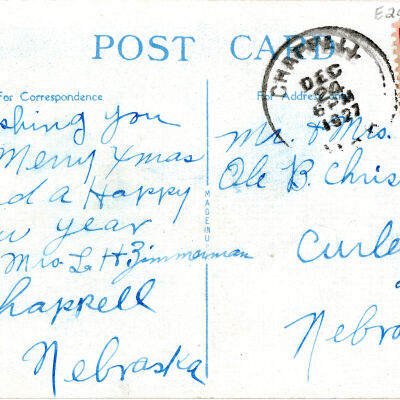 E24
POST CARD
For Correspondence
For Address
CHAPPELL
DEC
24
6 PM
1927
shing you
Merry Xmas
d a Happy
w year
Mrs L. H. Zimmerman
Chappell
Nebraska
MADE IN U
Mr. & Mrs.
Ole B. Chris
Curle
Nebra